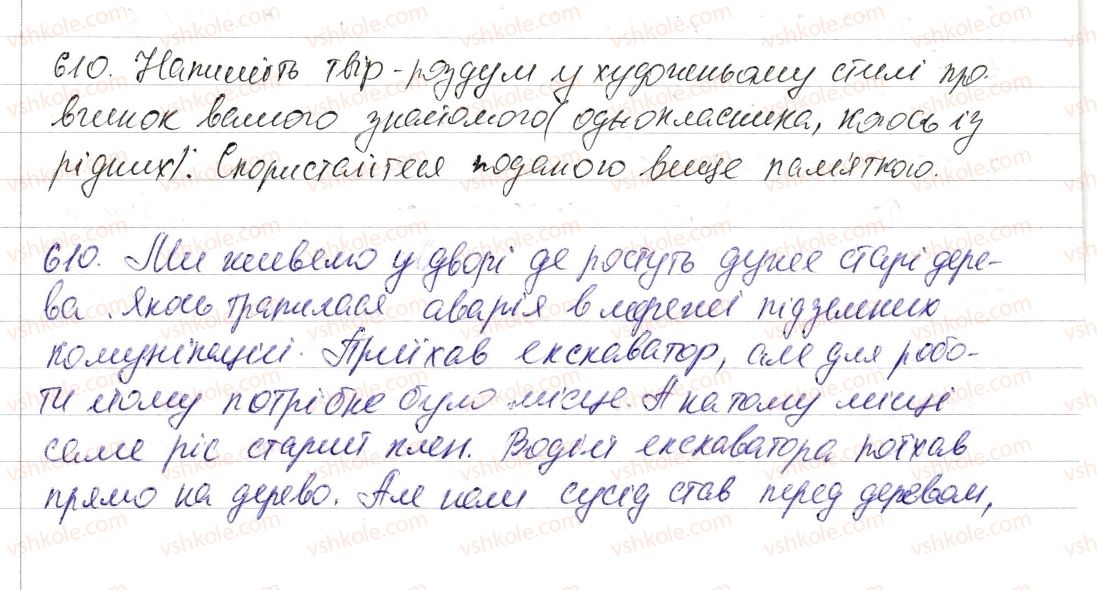 610. Напишіть твір-роздум у художньому стилі про
вчинок вашого знайомого (однокласника, когось із
рідних). Скористайтеся поданою вище пам'яткою.
610. Ми живемо у дворі де ростуть дуже старі дере-
ва. Якось трапилася аварія в мережі підземних
комунікацій. Приїхав екскаватор, але для робо-
ти йому потрібно було місце. А на тому місці
саме ріс старий клен. Водій екскаватора поїхав
прямо на дерево. Але наш сусід став перед деревом,